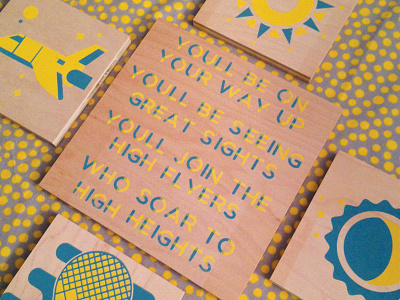 YOULL BE ON
YOUR WAY UP
YOULL BE SEEING
GREAT SIGHTS
YOULL JOIN THE
HIGH FLYERS
WHO SOAR TO
HIGH HEIGHTS